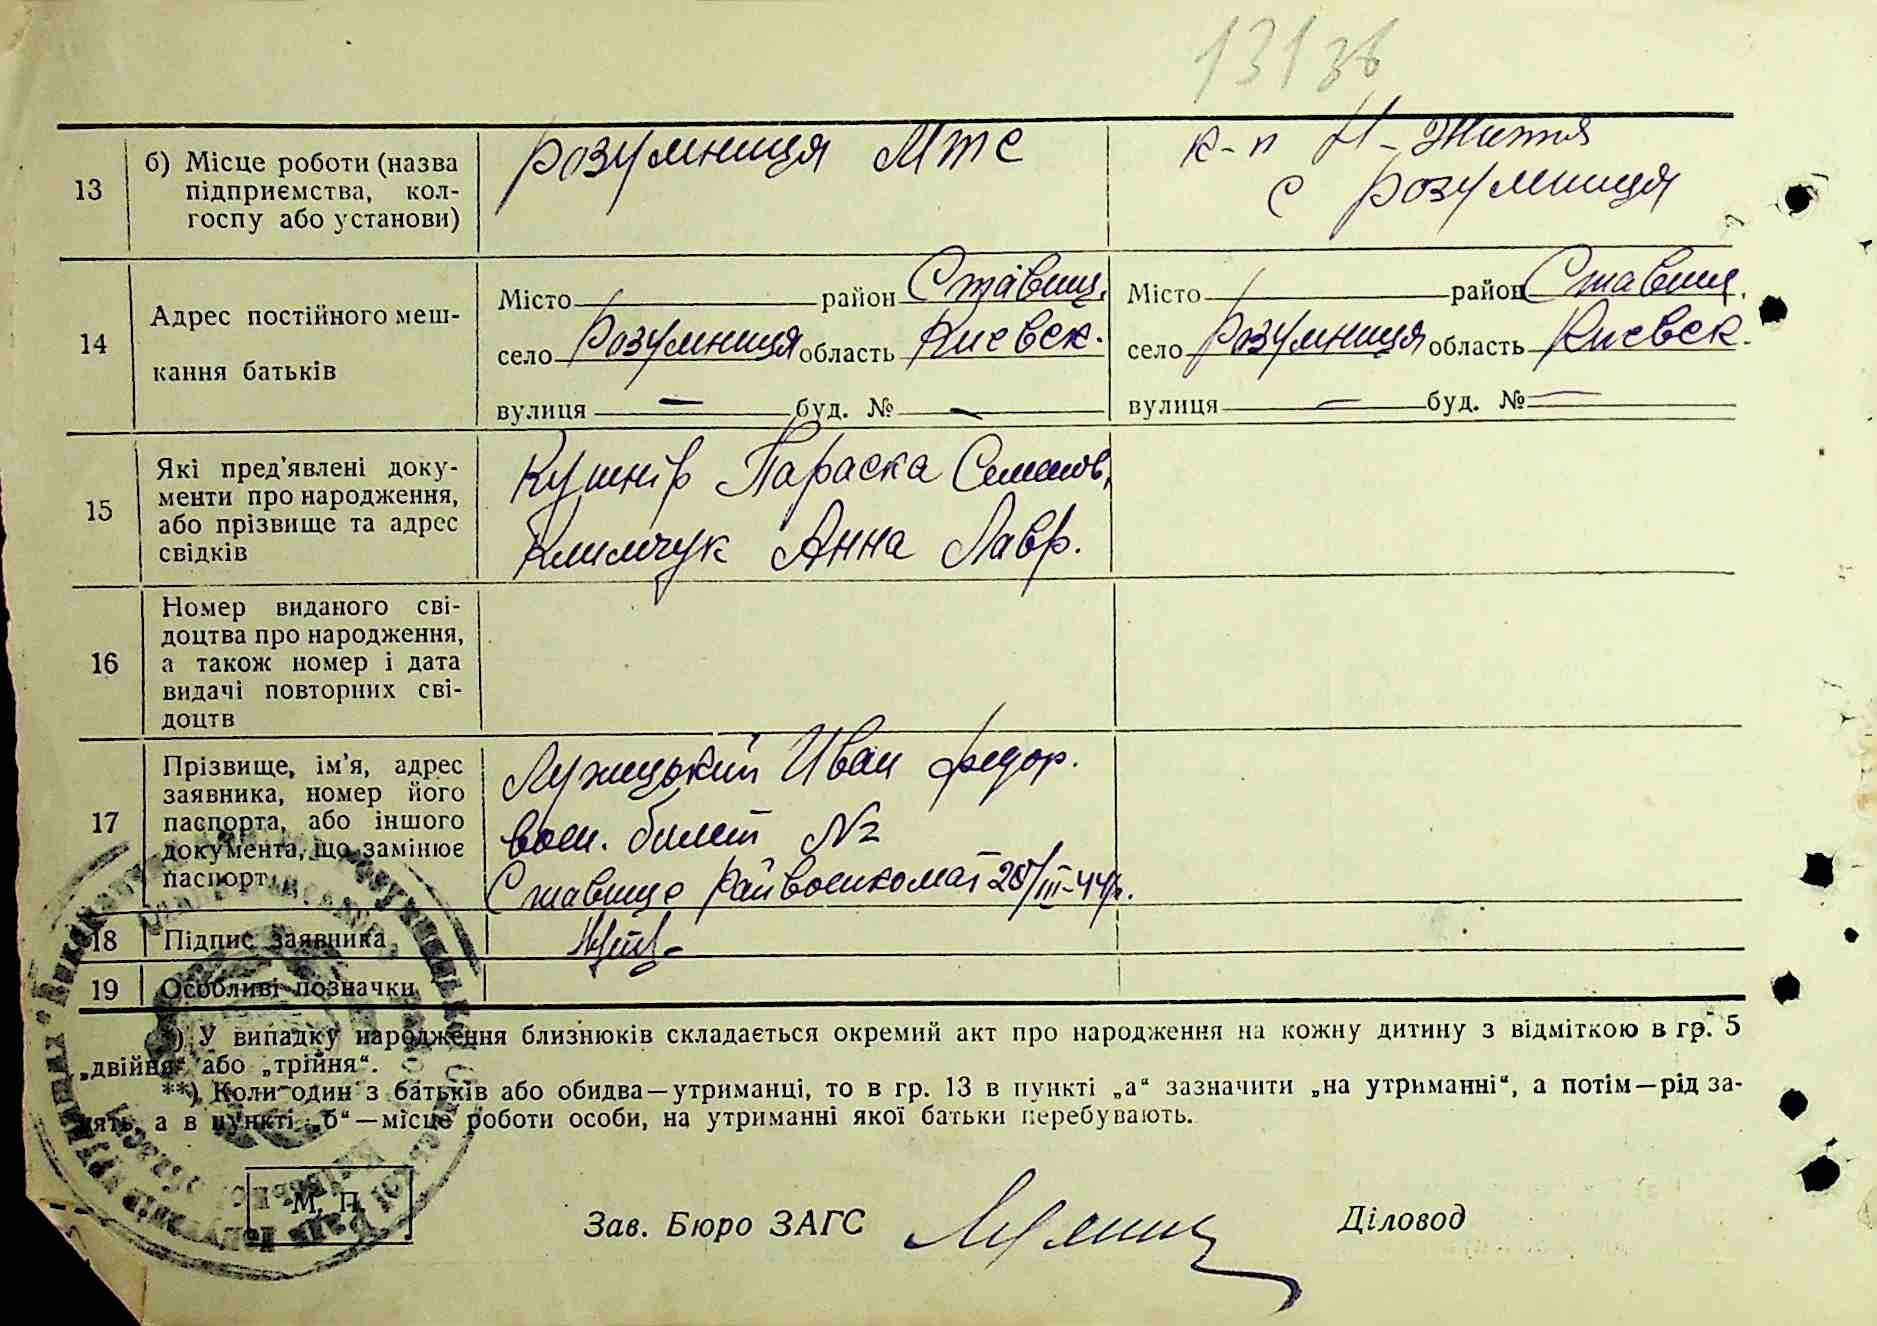 131 зв
13
б) Місце роботи (назва
підприємства, кол-
госпу або установи)
Розумниця МТС
к-п Н-Життя
с Розумниця
14
Адрес постійного меш-
кання батьків
Місто район Ставищ.
село Розумниця область Киевск.
вулиця — буд. № —
Місто район Ставищ.
село Розумниця область Киевск.
вулиця — буд. № —
15
Які пред'явлені доку-
менти про народження,
або прізвище та адрес
свідків
Кушнір Параска Семенов.
Климчук Анна Лавр.
16
Номер виданого сві-
доцтва про народження,
а також номер і дата
видачі повторних сві-
доцтв
17
Прізвище, ім'я, адрес
заявника, номер його
паспорта, або іншого
документа, що замінює
паспорт
Лужицький Иван Федор.
воен. билет №
Ставище Райвоенкомат 28/III-44р.
18
Підпис заявника
19
Особливі позначки
*) У випадку народження близнюків складається окремий акт про народження на кожну дитину з відміткою в гр. 5
„двійня“ або „трійня“.
**) Коли один з батьків або обидва—утриманці, то в гр. 13 в пункті „а“ зазначити „на утриманні“, а потім—рід за-
нять, а в пункті „б“—місце роботи особи, на утриманні якої батьки перебувають.
М. П.
Зав. Бюро ЗАГС
Діловод